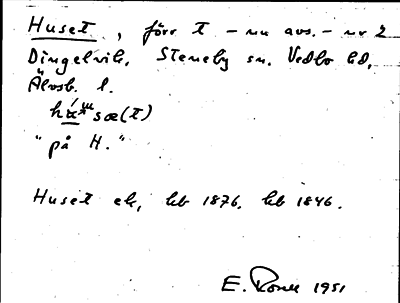 Huset, förr t - nu avs. - nr 2
Dingelvik, Steneby sn. Vedbo hd,
Älvsb. l.
"på H."
Huset ek, hb 1876, hb 1846.
E. 1951